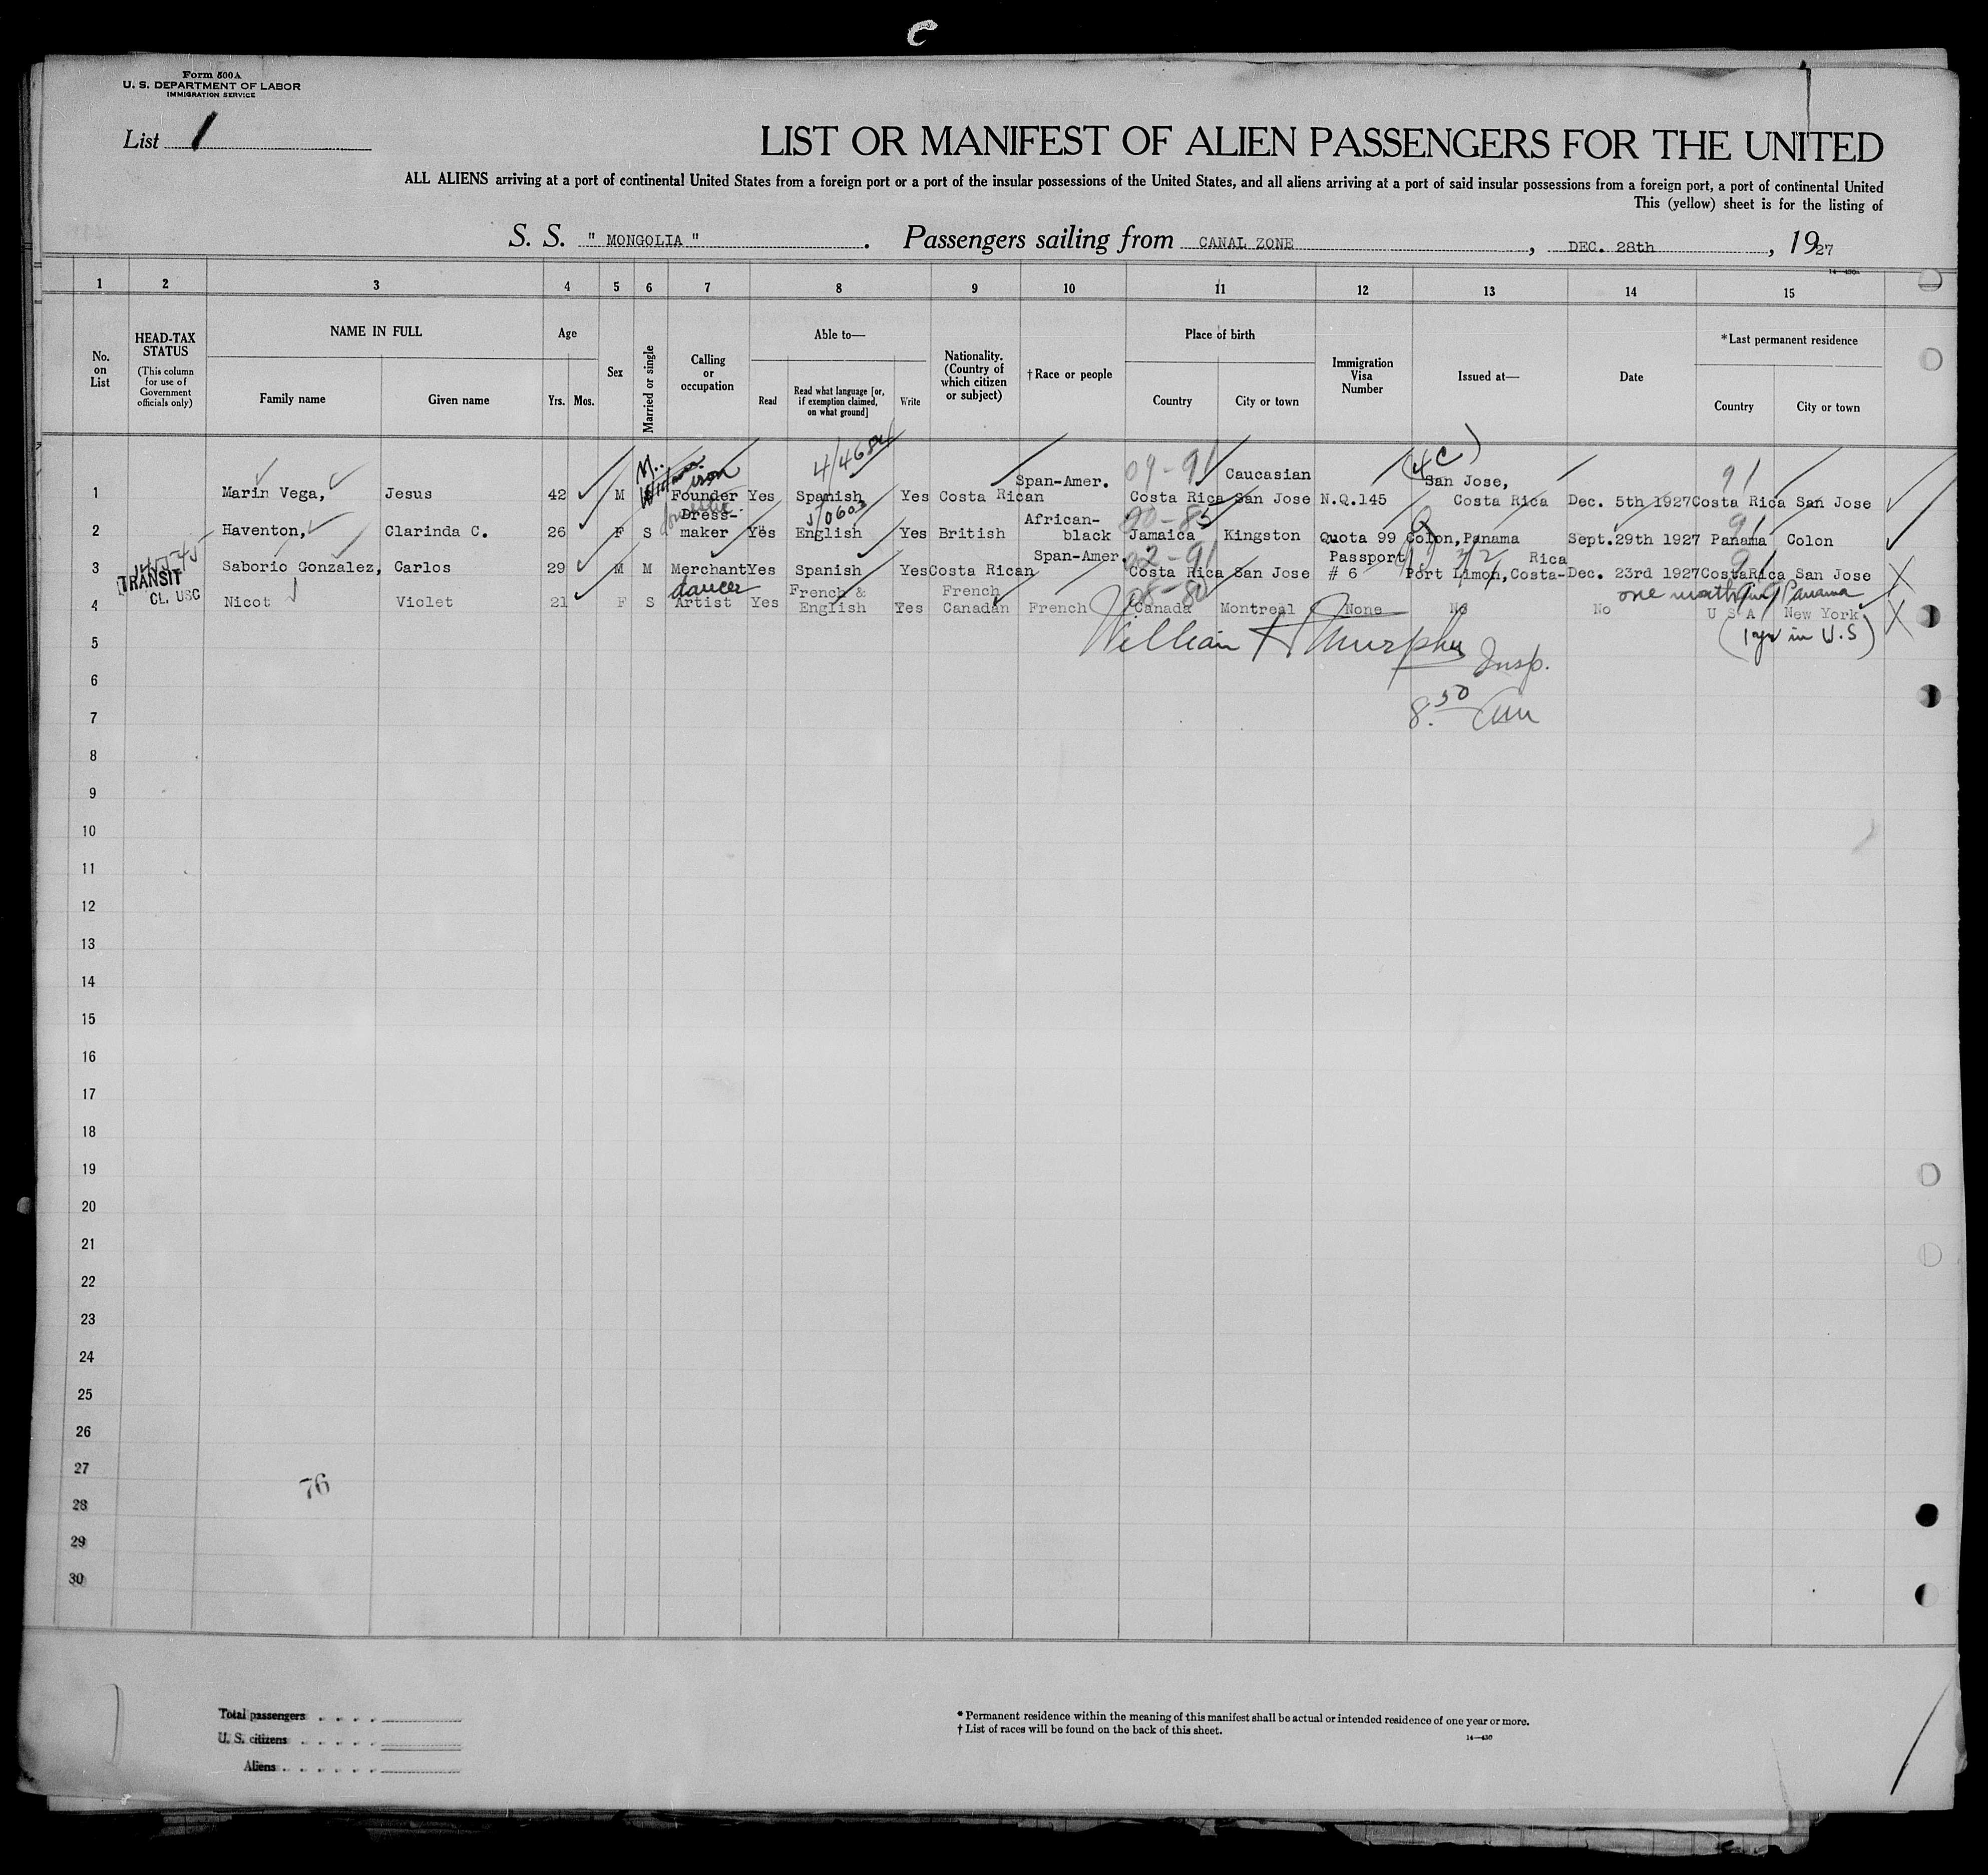 Form 500A
U. S. DEPARTMENT OF LABOR
IMMIGRATION SERVICE
List 1
LIST OR MANIFEST OF ALIEN PASSENGERS FOR THE UNITED
ALL ALIENS arriving at a port of continental United States from a foreign port or a port of the insular possessions of the United States, and all aliens arriving at a port of said insular possessions from a foreign port, a port of continental United
This (yellow) sheet is for the listing of
S. S. " MONGOLIA " . Passengers sailing from CANAL ZONE , DEC. 28th , 1927
14—430a
1 2 3 4 5 6 7 8 9 10 11 12 13 14 15
No. on List
HEAD-TAX STATUS
(This column for use of Government officials only)
NAME IN FULL
Family name Given name
Age
Yrs. Mos.
Sex
Married or single
Calling or occupation
Able to—
Read
Read what language [or, if exemption claimed, on what ground]
Write
Nationality. (Country of which citizen or subject)
† Race or people
Place of birth
Country City or town
Immigration Visa Number
Issued at—
Date
* Last permanent residence
Country City or town
4/4684 (4C)
iron Span-Amer. 09-91 Caucasian San Jose, 91
1 Marin Vega, Jesus 42 M Founder Yes Spanish Yes Costa Rican Costa Rica San Jose N.Q.145 Costa Rica Dec. 5th 1927 Costa Rica San Jose
Dress- 5/0603 African- Q 91
2 Haventon, Clarinda C. 26 F S maker Yes English Yes British black Jamaica Kingston Quota 99 Colon, Panama Sept.29th 1927 Panama Colon
Span-Amer. 02-91 Passport Rica 91
3 Saborio Gonzalez, Carlos 29 M M Merchant Yes Spanish Yes Costa Rican Costa Rica San Jose # 6 Port Limon, Costa- Dec. 23rd 1927 CostaRica San Jose
TRANSIT
CL. USC
dancer French & French 08-80 one month in Panama
4 Nicot Violet 21 F S Artist Yes English Yes Canadan French Canada Montreal None No No U S A New York
(1 yr in U.S)
5 William H Murphy Insp.
6
7 8.50 am
8
9
10
11
12
13
14
15
16
17
18
19
20
21
22
23
24
25
26
27
76
28
29
30
Total passengers . . . .
U. S. citizens . . . . .
Aliens . . . . . .
* Permanent residence within the meaning of this manifest shall be actual or intended residence of one year or more.
† List of races will be found on the back of this sheet.
14—430